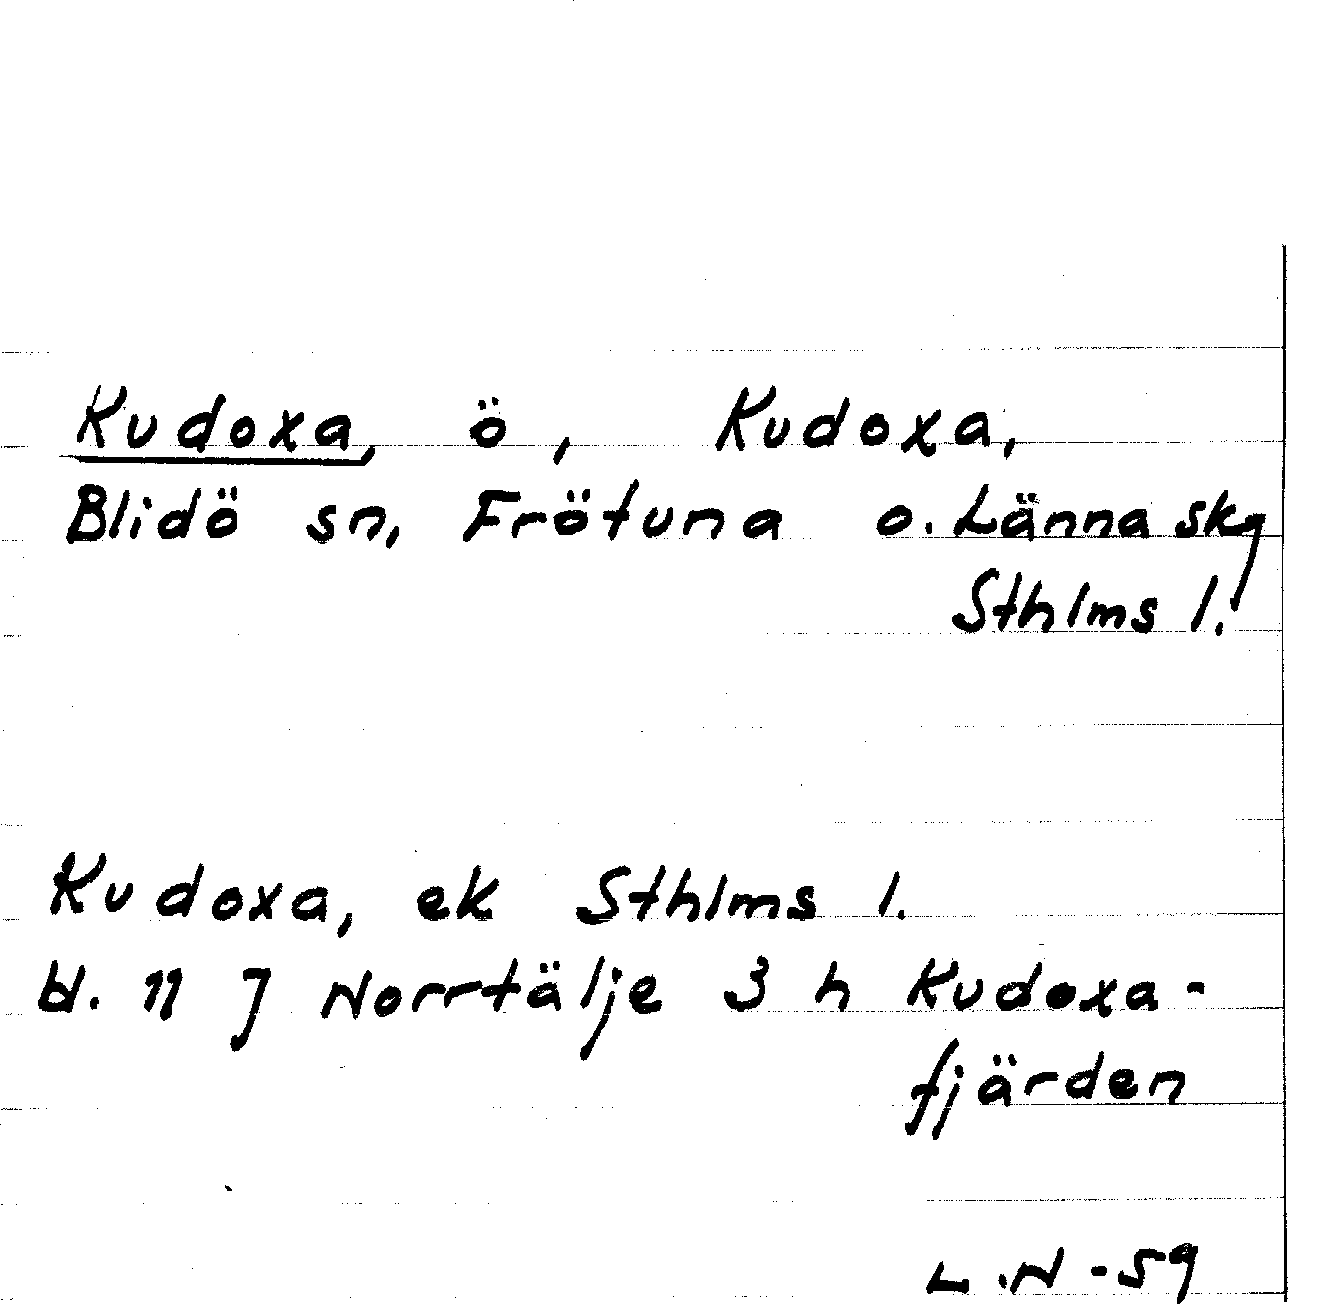 Kudoxa, ö, Kudoxa,
Blidö sn, Frötuna o. Länna skg
Sthlms l.
Kudoxa, ek Sthlms l.
bl. 11 J Norrtälje 3 h Kudoxa-
fjärden
L.N -59